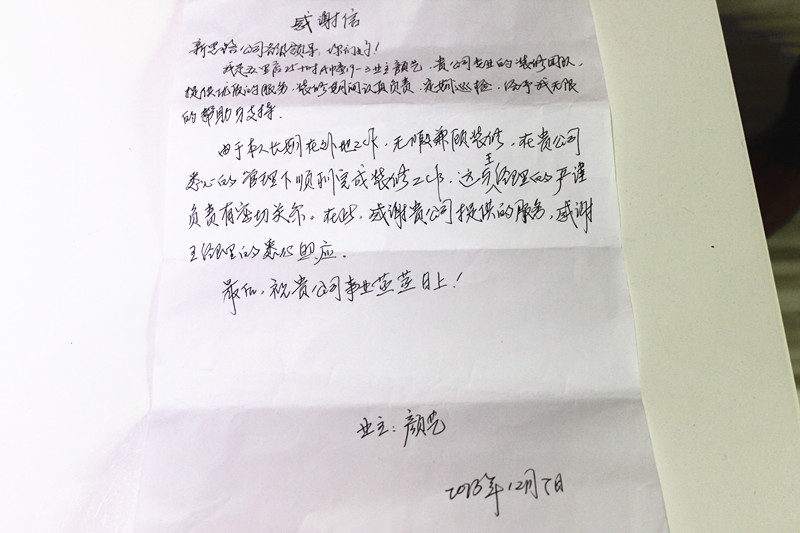 感谢信
新思路公司各级领导：你们好！
我是五里店 19-3业主颜艺，贵公司专业的装修团队，
提供优质的服务，装修期间认真负责，定期巡检，给予我无限
的帮助与支持。
由于本人长期在外地工作，无暇兼顾装修，在贵公司
悉心的管理下顺利完成装修工作，这与王经理的严谨
负责有密切关系。在此，感谢贵公司提供的服务，感谢
王经理的悉心照应。
最后，祝贵公司事业蒸蒸日上！
业主：颜艺
2013年12月7日